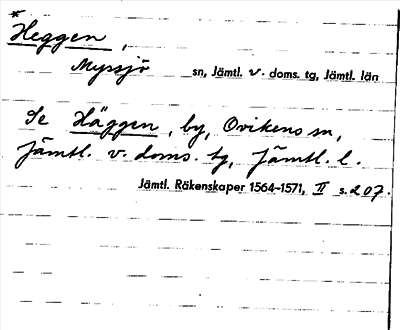 *
Heggen,
Myssjö sn, Jämtl. v. doms. tg, Jämtl. län
Se Häggen, by, Ovikens sn,
Jämtl. v. doms. tg, Jämtl. l.
Jämtl. Räkenskaper 1564-1571, II s. 207.